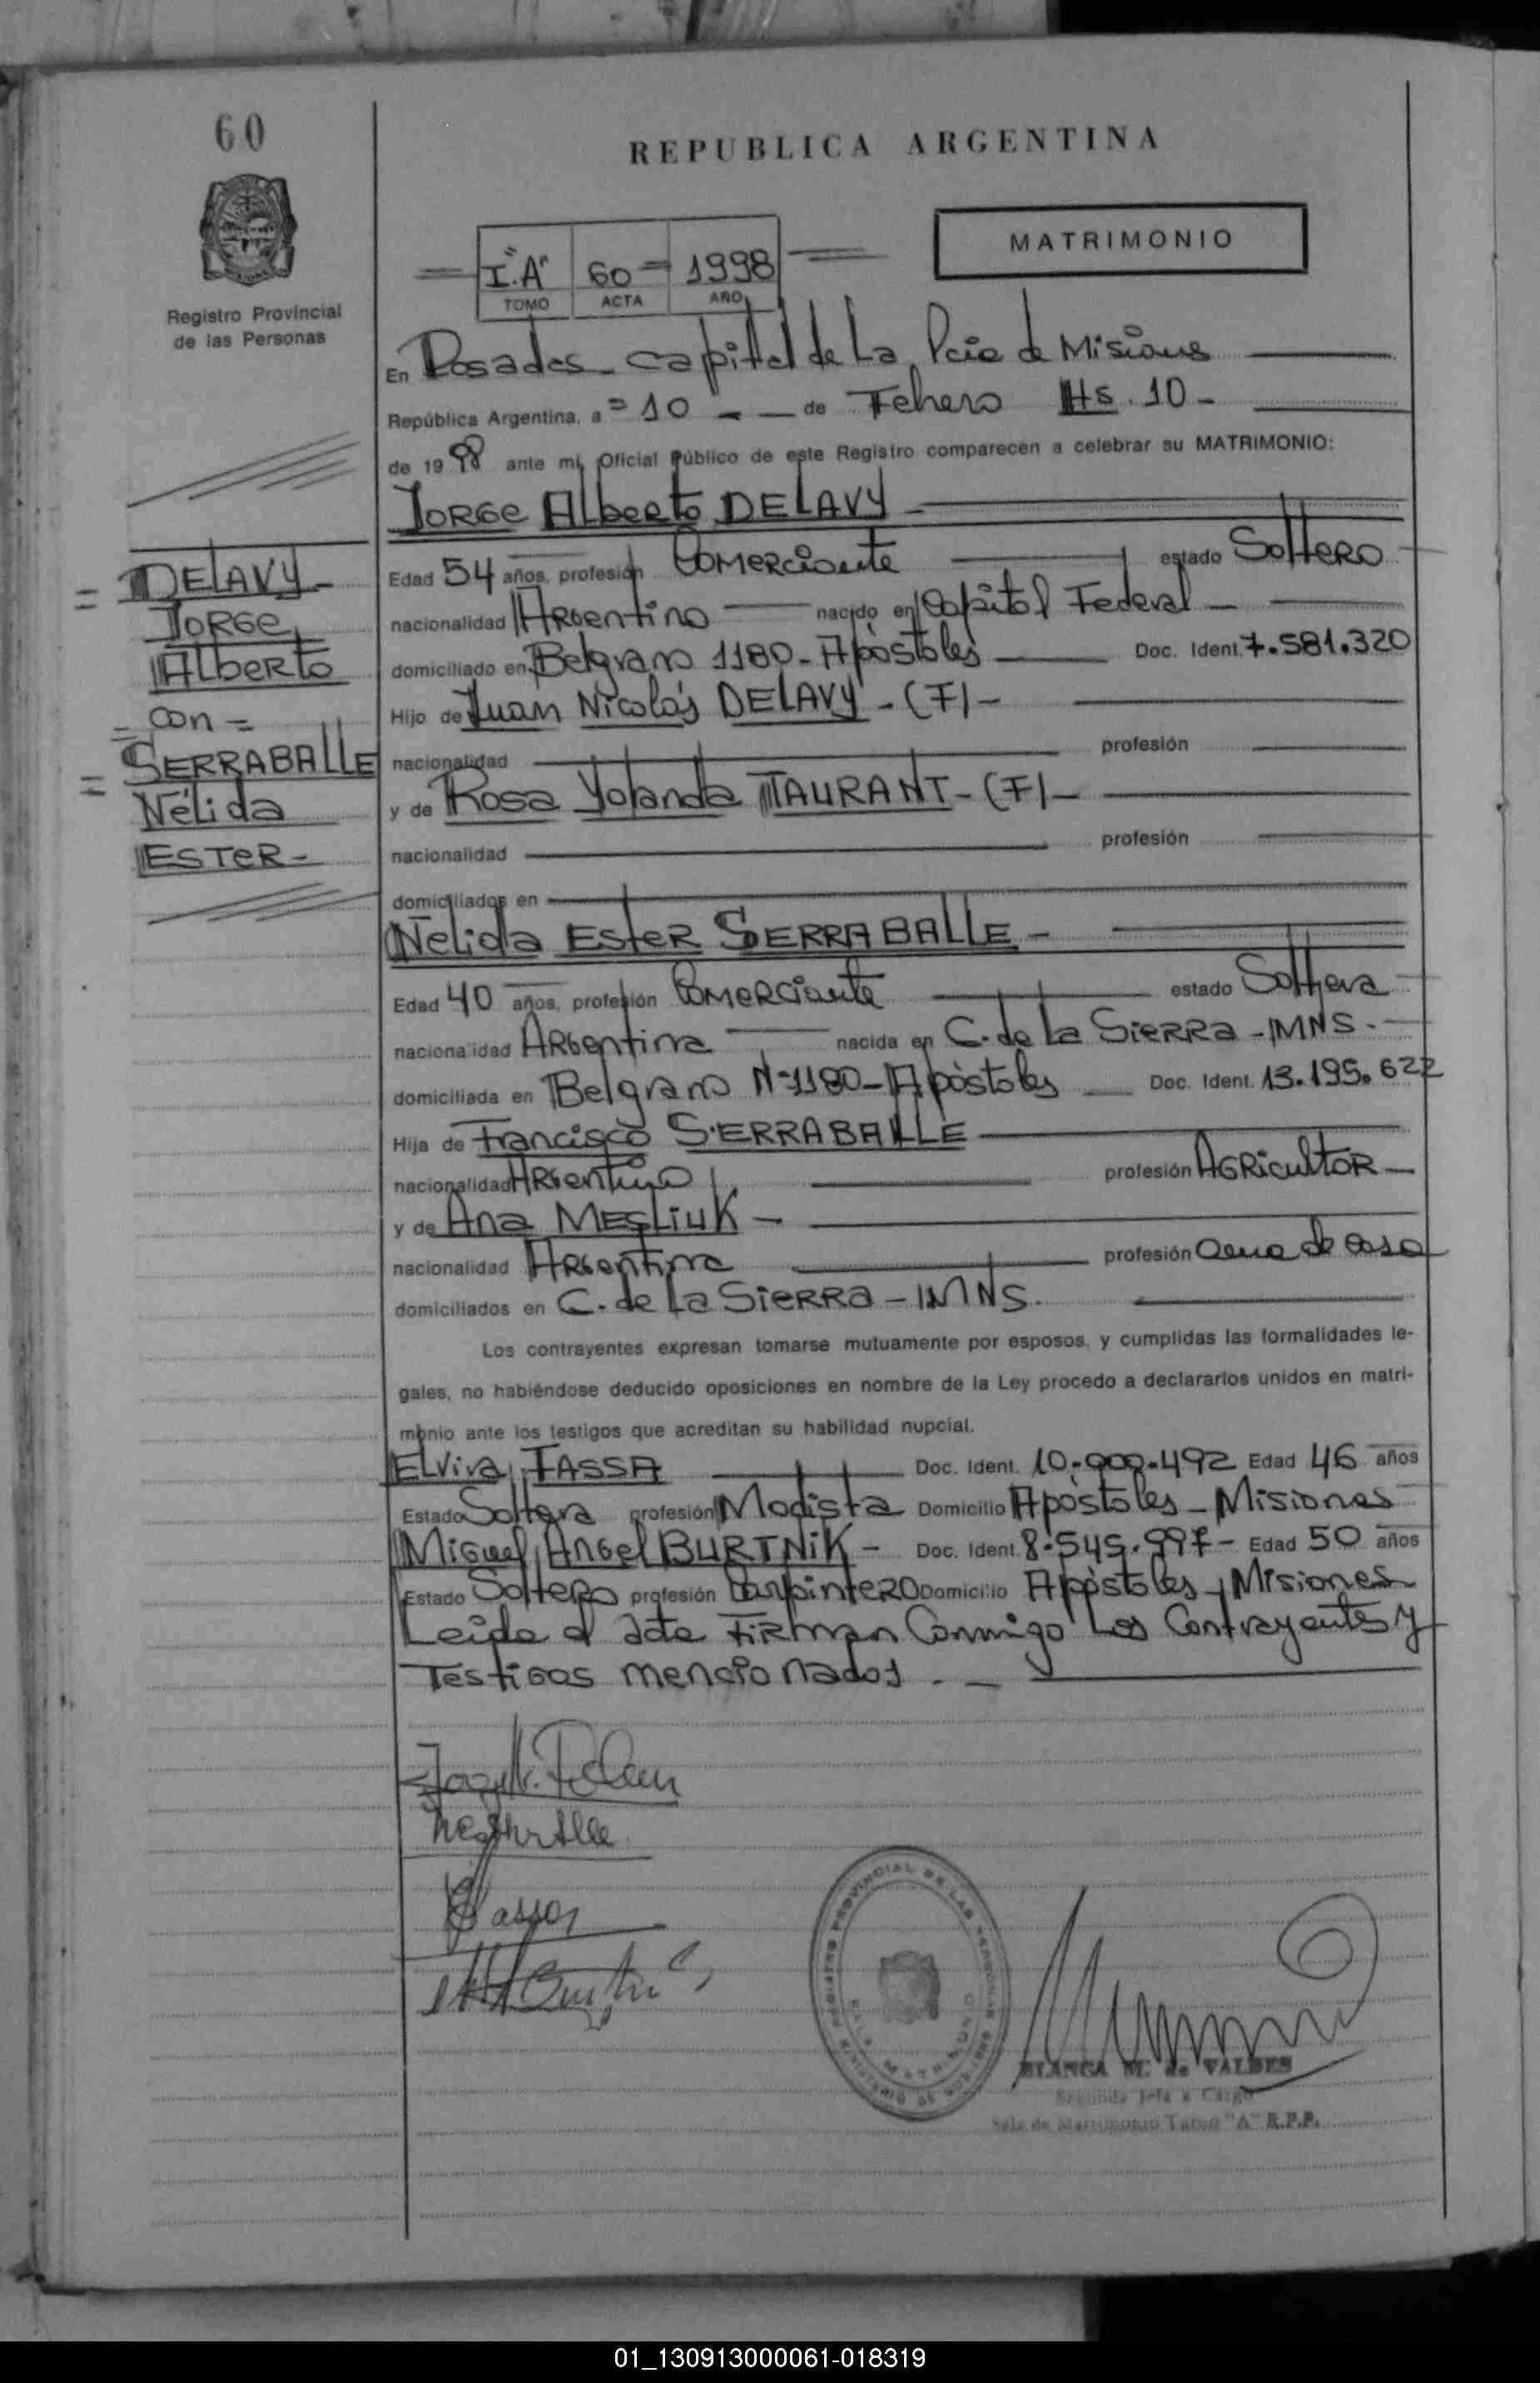 60
REPUBLICA ARGENTINA
MATRIMONIO
I."A" 60 = 1998
TOMO ACTA AÑO
Registro Provincial
de las Personas
En Posadas - capital de La Pcia de Misiones
República Argentina, a = 10 - - de Febrero Hs. 10 -
de 19 98 ante mi, Oficial Público de este Registro comparecen a celebrar su MATRIMONIO:
Jorge Alberto DELAVY -
Edad 54 años, profesión Comerciante estado Soltero
nacionalidad Argentino nacido en Capital Federal -
domiciliado en Belgrano 1180 - Apóstoles Doc. Ident. 7.581.320
Hijo de Juan Nicolás DELAVY - (F) -
nacionalidad profesión
y de Rosa Yolanda TAURANT - (F) -
nacionalidad profesión
domiciliados en
= DELAVY -
Jorge
Alberto
= con =
= SERRABALLE
Nélida
ESTER -
Nelida Ester SERRABALLE -
Edad 40 años, profesión Comerciante estado Soltera
nacionalidad Argentina nacida en C. de la Sierra - MNS. -
domiciliada en Belgrano Nº 1180 - Apóstoles Doc. Ident. 13.195.622
Hija de Francisco SERRABALLE
nacionalidad Argentino profesión Agricultor -
y de Ana MESLIUK -
nacionalidad Argentina profesión ama de casa
domiciliados en C. de La Sierra - MNS.
Los contrayentes expresan tomarse mutuamente por esposos, y cumplidas las formalidades le-
gales, no habiéndose deducido oposiciones en nombre de la Ley procedo a declararlos unidos en matri-
monio ante los testigos que acreditan su habilidad nupcial.
Elvira TASSA Doc. Ident. 10.900.492 Edad 46 años
Estado Soltera profesión Modista Domicilio Apóstoles - Misiones
Miguel Angel BURTNIK - Doc. Ident. 8.545.997 - Edad 50 años
Estado Soltero profesión Carpintero Domicilio Apóstoles - Misiones
Leida el acta Firman Conmigo Los Contrayentes y
Testigos mencionados. -
REGISTRO PROVINCIAL DE LAS PERSONAS
MINISTERIO DE GOBIERNO
BLANCA M. de VALDES
Segunda Jefa a Cargo
Sala de Matrimonio Turno "A" R.P.P.
01_130913000061-018319